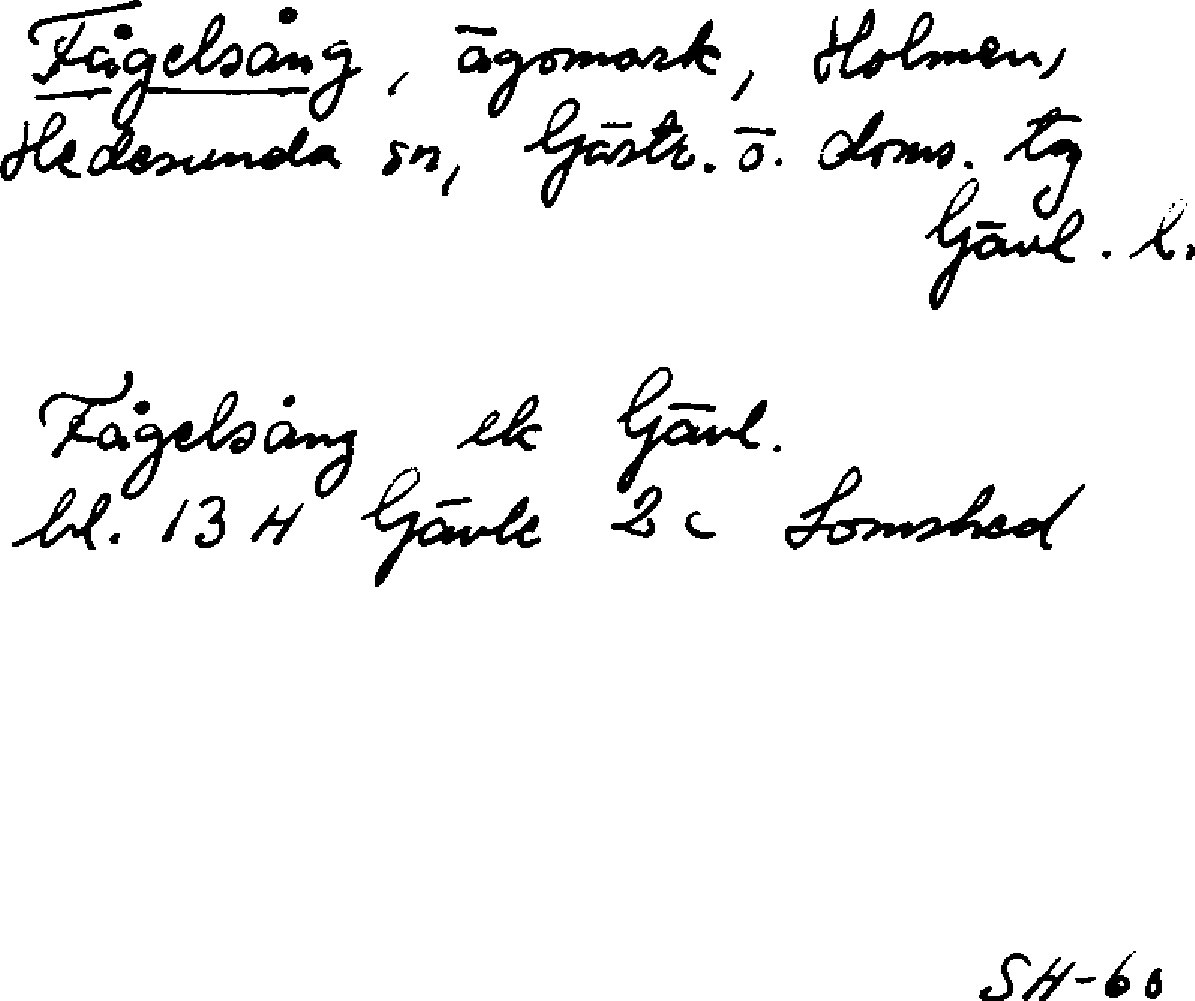 Fågelsång, ägomark, Holmen,
Hedesunda sn, Gästr. ö. doms. tg
Gävl. l.
Fågelsång ek Gävl.
bl. 13 H Gävle 2 c Lomshed
SH-60